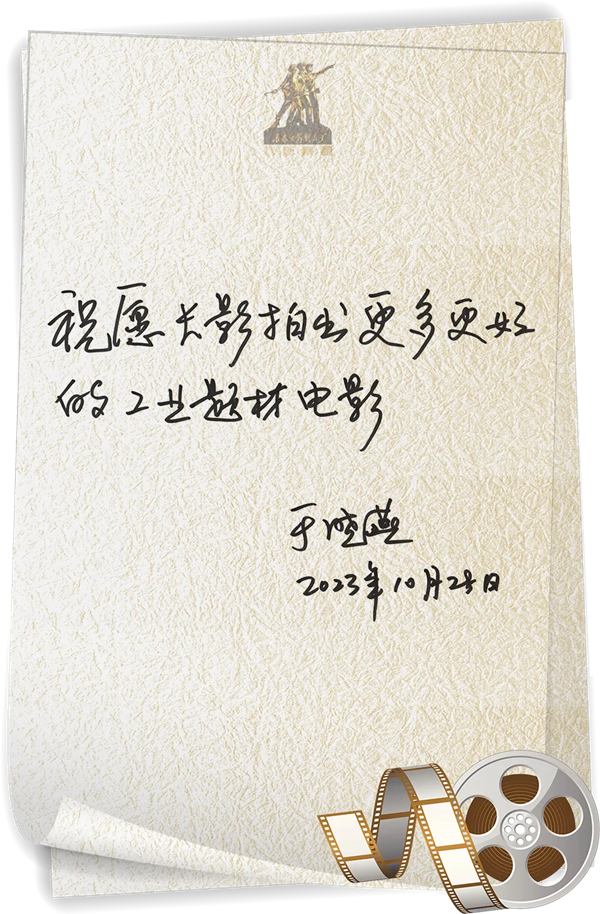 祝愿长影拍出更多更好
的工业题材电影
于晓燕
2023年10月28日